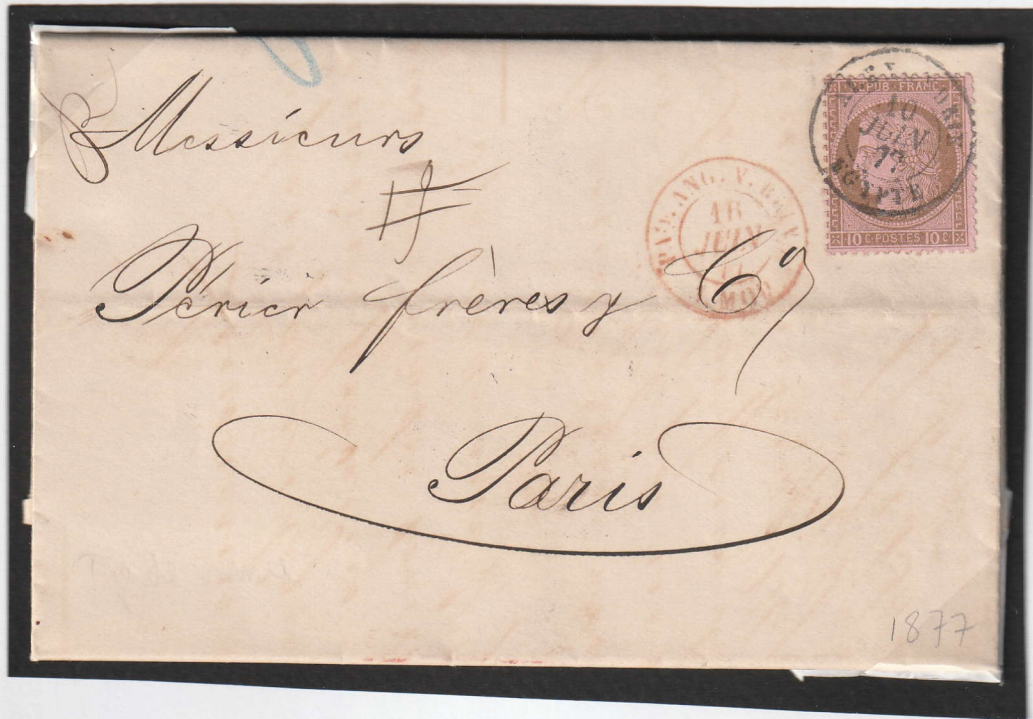 Messieurs
Périer frères y Cº
Paris
REPUB. FRANC
10 C. POSTES 10 C.
10
JUIN
77
EGYPTE
ANG. V.
JUIN
1877